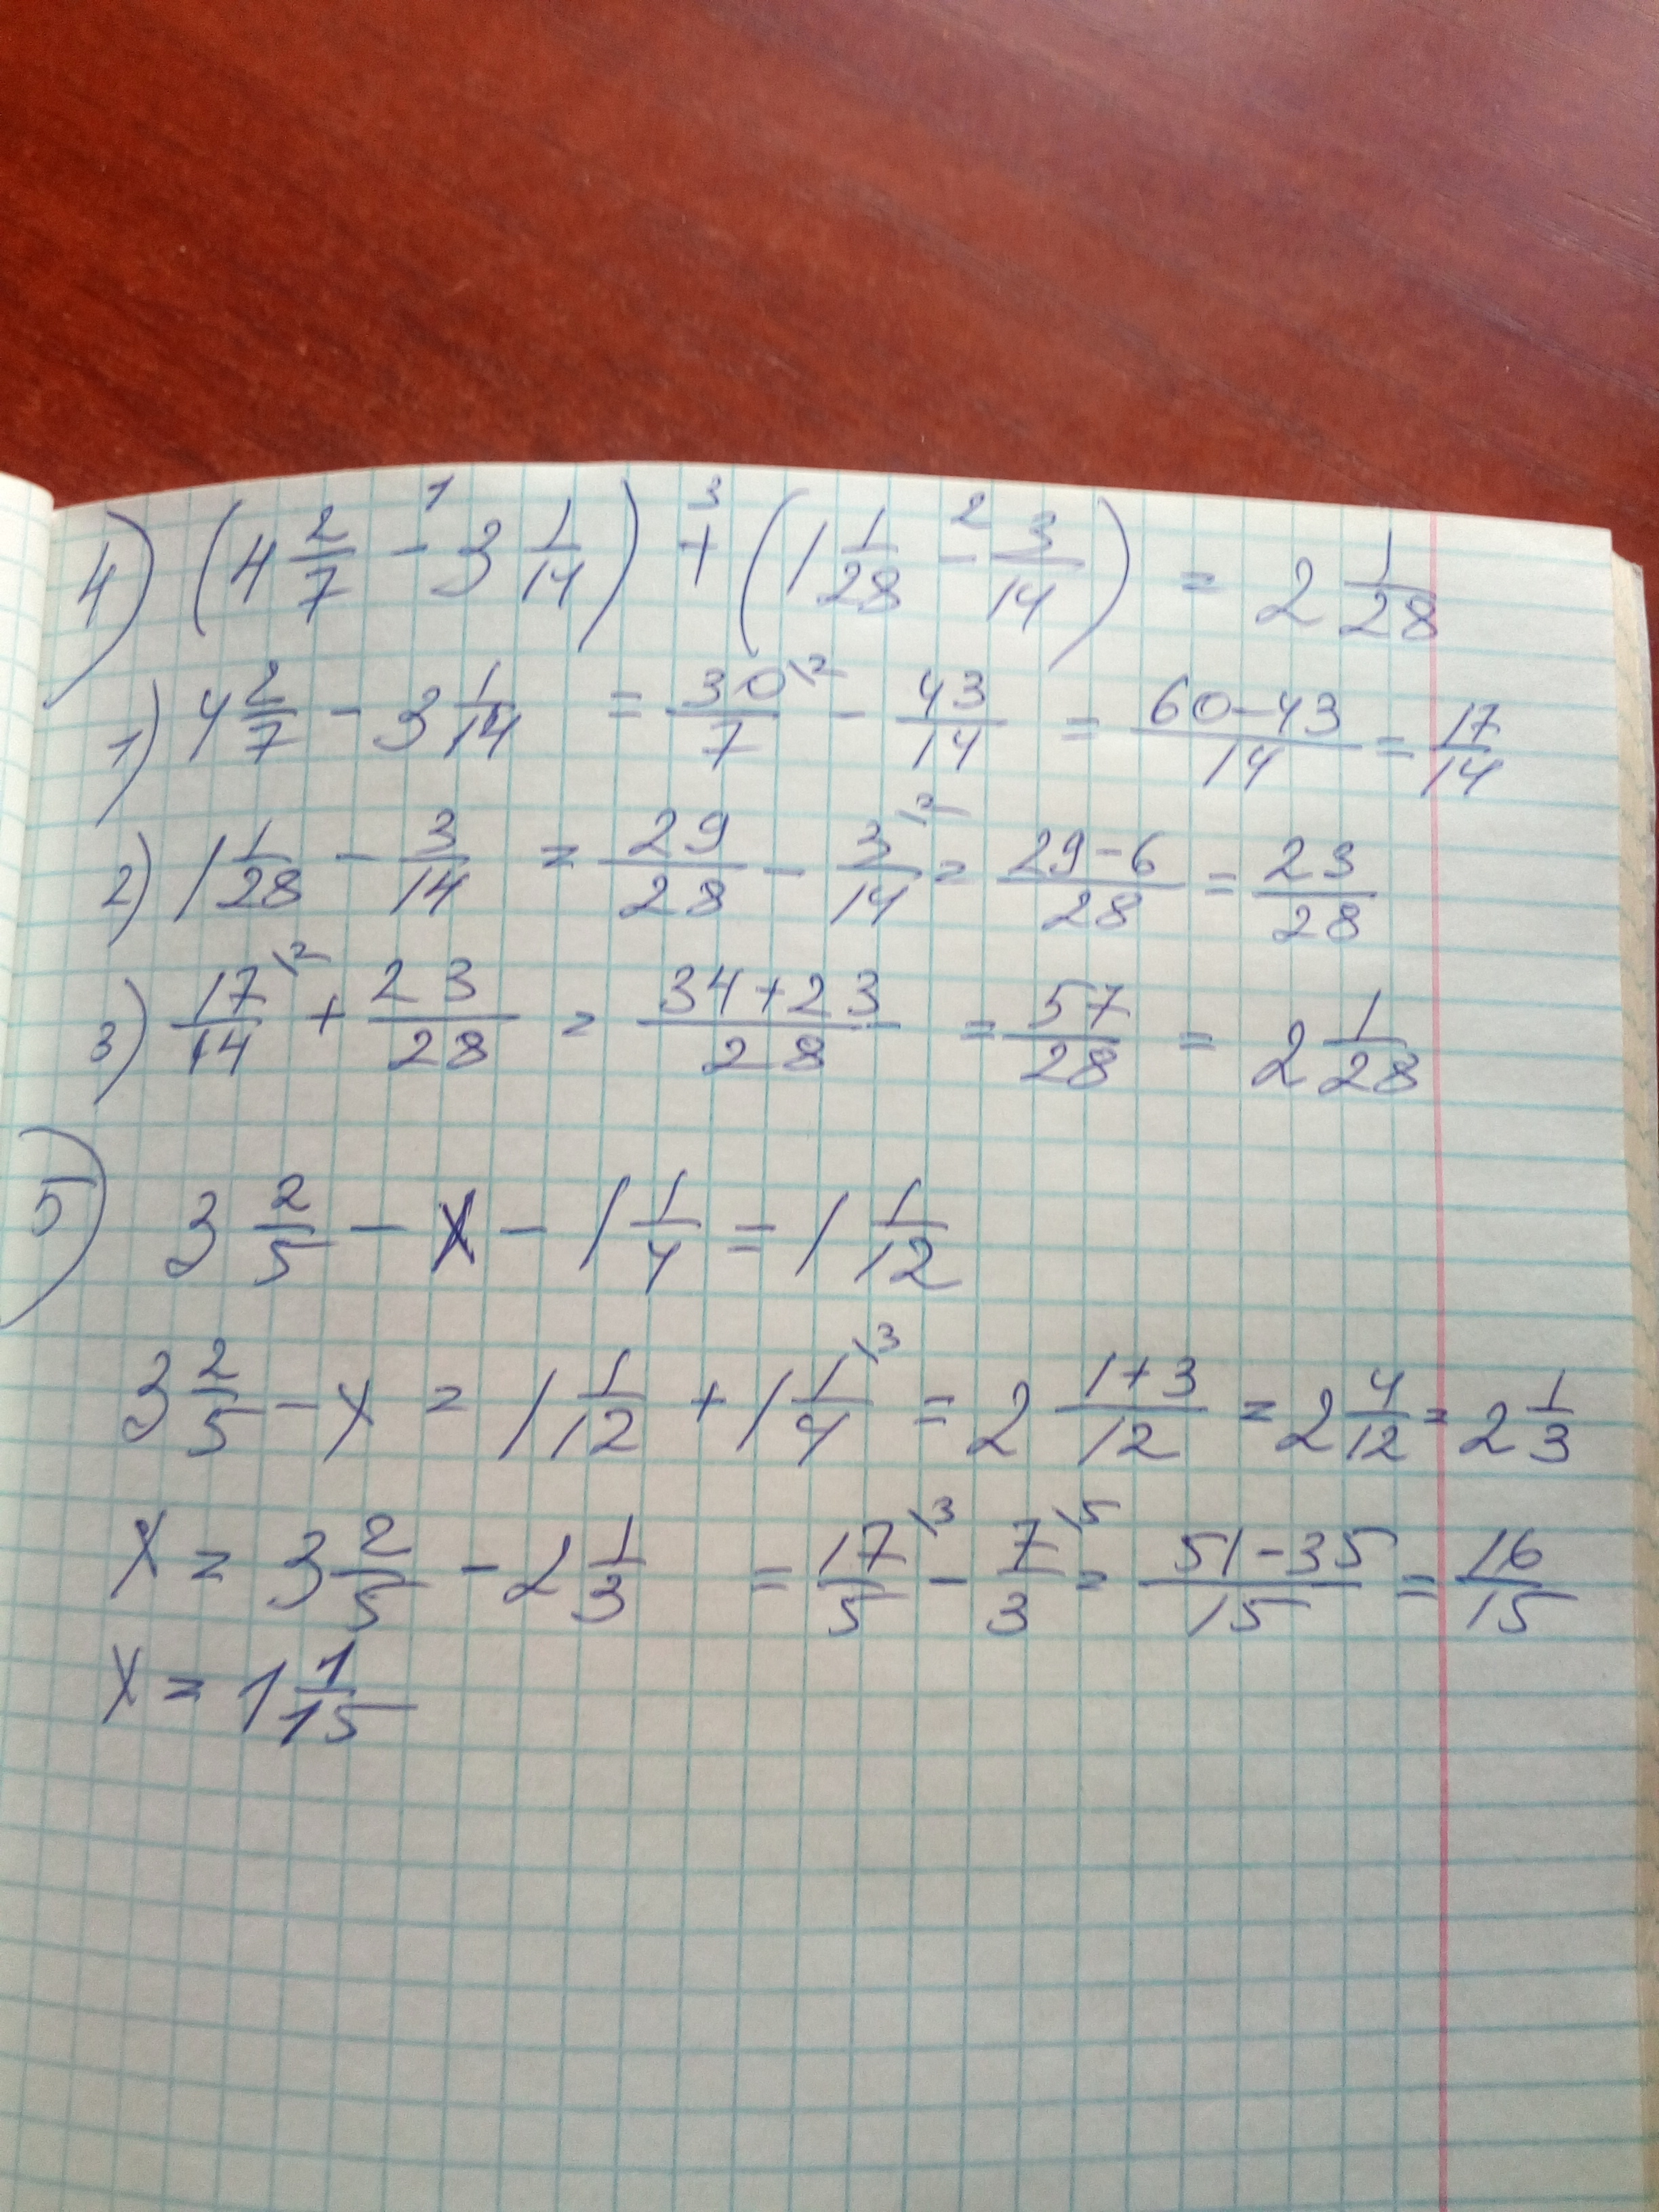 4) (4 2/7 -¹ 3 1/14) +³ (1 1/28 -² 3/14) = 2 1/28
1) 4 2/7 - 3 1/14 = 30\2/7 - 43/14 = 60-43/14 = 17/14
2) 1 1/28 - 3/14 = 29/28 - 3\2/14 = 29-6/28 = 23/28
3) 17\2/14 + 23/28 = 34+23/28 = 57/28 = 2 1/28
5) 3 2/5 - x - 1 1/4 = 1 1/12
3 2/5 - x = 1 1/12 + 1 1\3/4 = 2 1+3/12 = 2 4/12 = 2 1/3
x = 3 2/5 - 2 1/3 = 17\3/5 - 7\5/3 = 51-35/15 = 16/15
x = 1 1/15